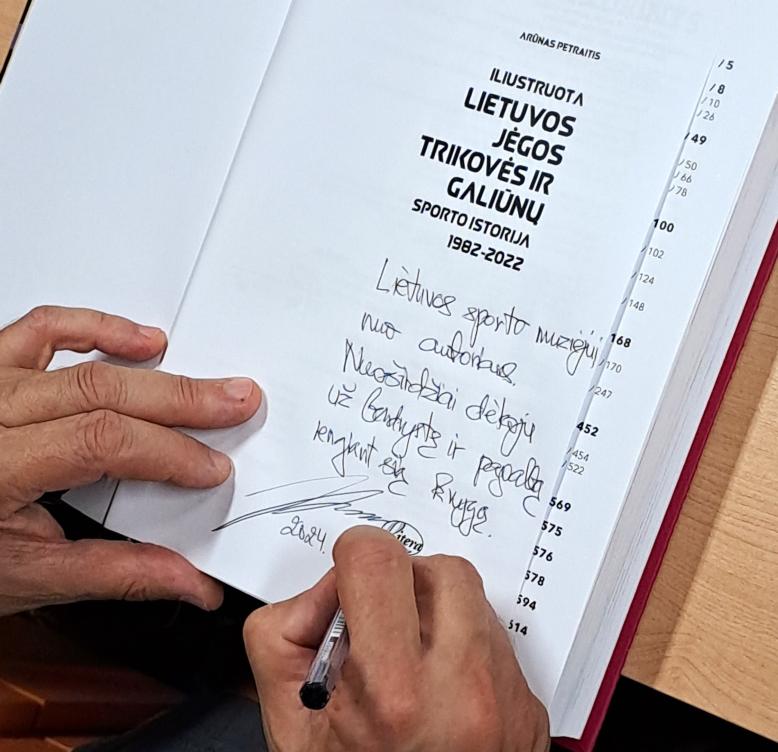 ARŪNAS PETRAITIS
ILIUSTRUOTA
LIETUVOS
JĖGOS
TRIKOVĖS IR
GALIŪNŲ
SPORTO ISTORIJA
1982-2022
Lietuvos sporto muziejui
nuo autoriaus.
Nuoširdžiai dėkoju
už bendrystę ir pagalbą
rengiant šią knygą.
2024.
Litera
/ 5
/ 8
/ 10
/ 26
/ 49
/ 50
/ 66
/ 78
100
/ 102
/ 124
/ 148
/ 168
/ 170
/ 247
452
/ 454
/ 522
569
575
576
578
594
614